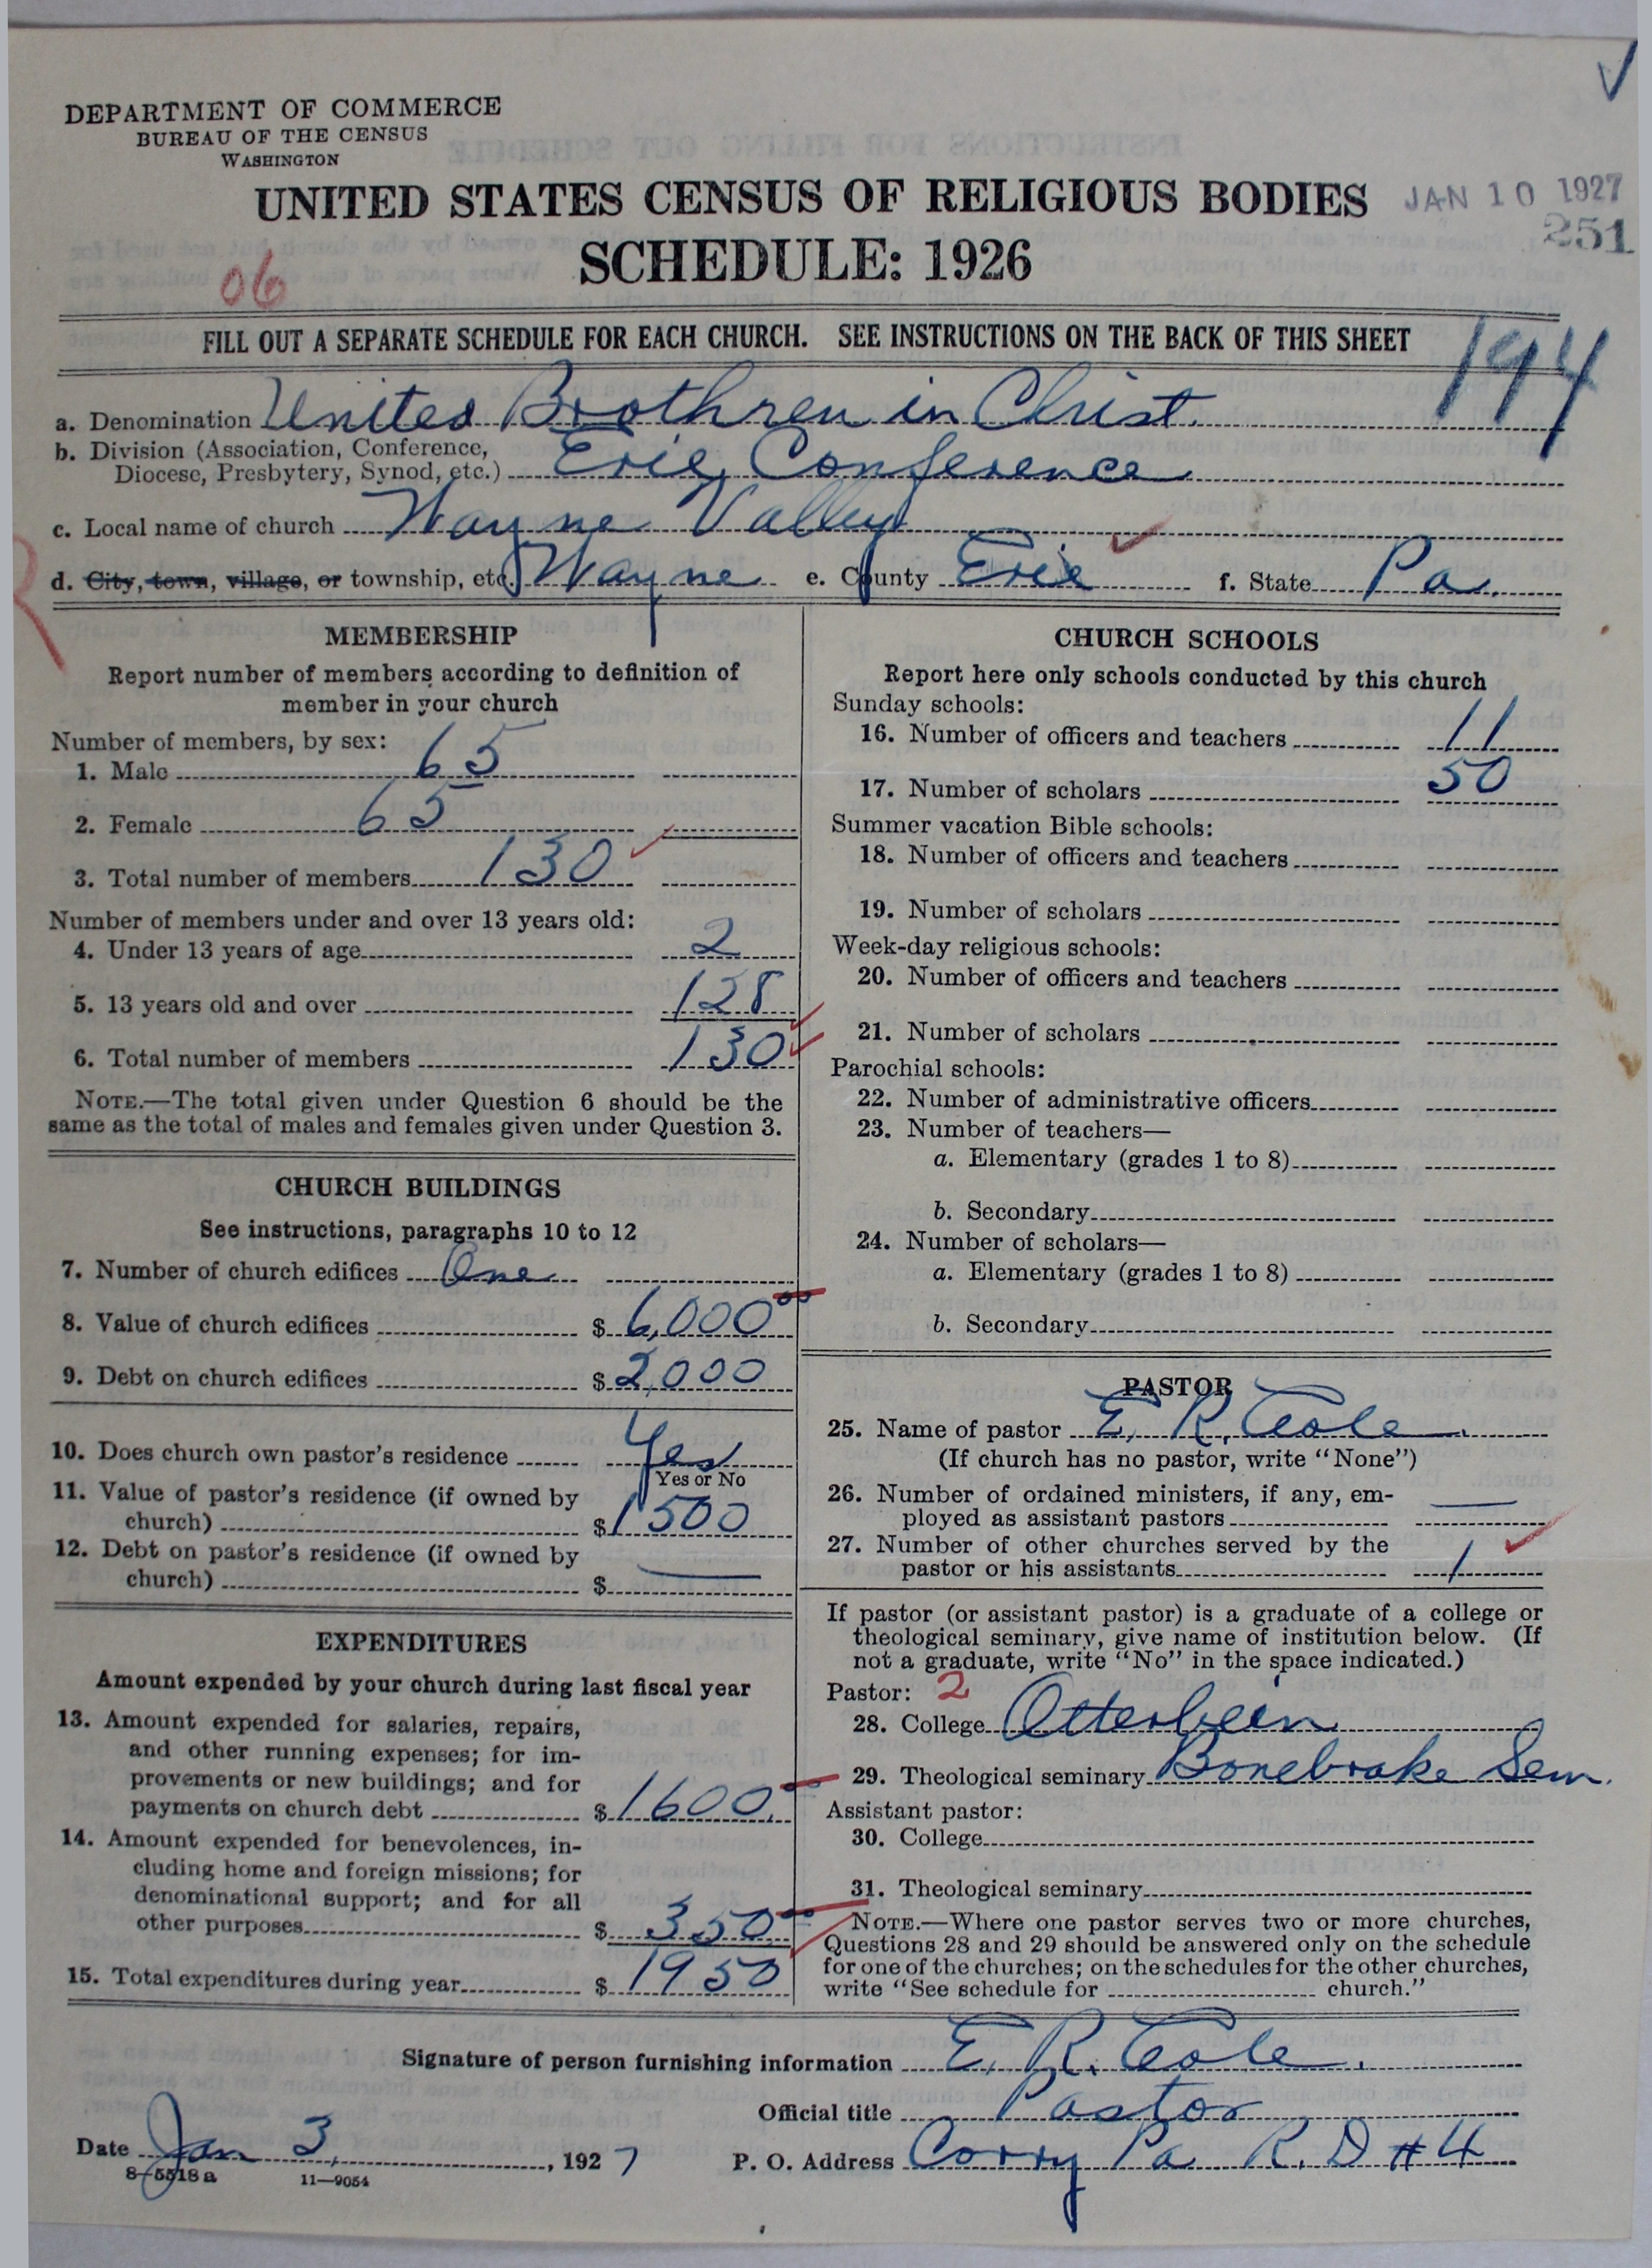 DEPARTMENT OF COMMERCE
BUREAU OF THE CENSUS
WASHINGTON
UNITED STATES CENSUS OF RELIGIOUS BODIES
JAN 10 1927
251
SCHEDULE: 1926
06
FILL OUT A SEPARATE SCHEDULE FOR EACH CHURCH. SEE INSTRUCTIONS ON THE BACK OF THIS SHEET
194
a. Denomination United Brothren in Christ.
b. Division (Association, Conference,
Diocese, Presbytery, Synod, etc.) Erie Conference
c. Local name of church Wayne Valley
d. City, town, village, or township, etc. Wayne e. County Erie f. State Pa.
R
MEMBERSHIP
Report number of members according to definition of
member in your church
Number of members, by sex:
1. Male 65
2. Female 65
3. Total number of members 130
Number of members under and over 13 years old:
4. Under 13 years of age 2
5. 13 years old and over 128
6. Total number of members 130
NOTE.—The total given under Question 6 should be the
same as the total of males and females given under Question 3.
CHURCH BUILDINGS
See instructions, paragraphs 10 to 12
7. Number of church edifices One
8. Value of church edifices $ 6,000 00
9. Debt on church edifices $ 2,000
10. Does church own pastor's residence Yes
Yes or No
11. Value of pastor's residence (if owned by
church) $ 1500
12. Debt on pastor's residence (if owned by
church) $ —
EXPENDITURES
Amount expended by your church during last fiscal year
13. Amount expended for salaries, repairs,
and other running expenses; for im-
provements or new buildings; and for
payments on church debt $ 1600. 00
14. Amount expended for benevolences, in-
cluding home and foreign missions; for
denominational support; and for all
other purposes $ 350 00
15. Total expenditures during year $ 1950
CHURCH SCHOOLS
Report here only schools conducted by this church
Sunday schools:
16. Number of officers and teachers 11
17. Number of scholars 50
Summer vacation Bible schools:
18. Number of officers and teachers
19. Number of scholars
Week-day religious schools:
20. Number of officers and teachers
21. Number of scholars
Parochial schools:
22. Number of administrative officers
23. Number of teachers—
a. Elementary (grades 1 to 8)
b. Secondary
24. Number of scholars—
a. Elementary (grades 1 to 8)
b. Secondary
PASTOR
25. Name of pastor E. R. Cole.
(If church has no pastor, write "None")
26. Number of ordained ministers, if any, em-
ployed as assistant pastors —
27. Number of other churches served by the
pastor or his assistants 1
If pastor (or assistant pastor) is a graduate of a college or
theological seminary, give name of institution below. (If
not a graduate, write "No" in the space indicated.)
Pastor: 2
28. College Otterbein
29. Theological seminary Bonebrake Sem.
Assistant pastor:
30. College
31. Theological seminary
NOTE.—Where one pastor serves two or more churches,
Questions 28 and 29 should be answered only on the schedule
for one of the churches; on the schedules for the other churches,
write "See schedule for church."
Signature of person furnishing information E. R. Cole.
Official title Pastor
Date Jan 3, 1927 P. O. Address Corry Pa R. D #4
8-5518a 11—9054